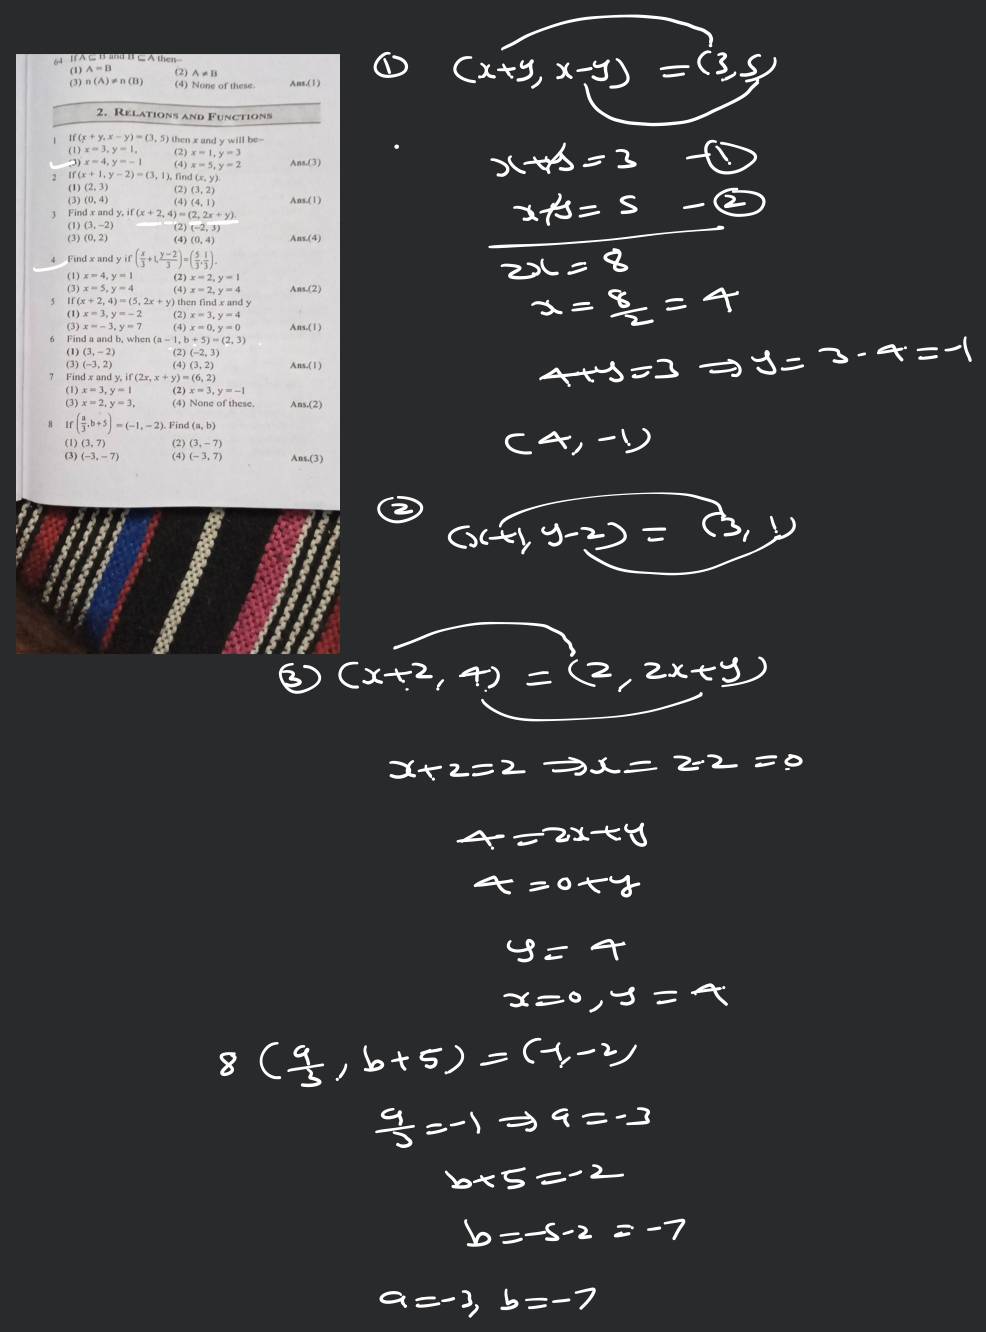 64 If A ⊆ B and B ⊆ A then–
(1) A = B (2) A ≠ B
(3) n (A) ≠ n (B) (4) None of these. Ans.(1)
2. RELATIONS AND FUNCTIONS
1 If (x + y, x − y) = (3, 5) then x and y will be–
(1) x = 3, y = 1, (2) x = 1, y = 3
(3) x = 4, y = − 1 (4) x = 5, y = 2 Ans.(3)
2 If (x + 1, y − 2) = (3, 1), find (x, y).
(1) (2, 3) (2) (3, 2)
(3) (0, 4) (4) (4, 1) Ans.(1)
3 Find x and y, if (x + 2, 4) = (2, 2x + y).
(1) (3, −2) (2) (−2, 3)
(3) (0, 2) (4) (0, 4) Ans.(4)
4 Find x and y if (x/3 + 1, y−2/3) = (5/3, 1/3).
(1) x = 4, y = 1 (2) x = 2, y = 1
(3) x = 5, y = 4 (4) x = 2, y = 4 Ans.(2)
5 If (x + 2, 4) = (5, 2x + y) then find x and y
(1) x = 3, y = − 2 (2) x = 3, y = 4
(3) x = − 3, y = 7 (4) x = 0, y = 0 Ans.(1)
6 Find a and b, when (a − 1, b + 5) = (2, 3)
(1) (3, − 2) (2) (−2, 3)
(3) (−3, 2) (4) (3, 2) Ans.(1)
7 Find x and y, if (2x, x + y) = (6, 2)
(1) x = 3, y = 1 (2) x = 3, y = −1
(3) x = 2, y = 3, (4) None of these. Ans.(2)
8 If (a/3, b+5) = (−1, − 2). Find (a, b)
(1) (3, 7) (2) (3, − 7)
(3) (−3, − 7) (4) (− 3, 7) Ans.(3)
① (x+y, x-y) = (3, 5)
x+y = 3 -①
x-y = 5 -②
2x = 8
x = 8/2 = 4
4+y=3 ⇒ y = 3-4=-1
(4, -1)
② (x+1, y-2) = (3, 1)
③ (x+2, 4) = (2, 2x+y)
x+2=2 ⇒ x = 2-2 = 0
4=2x+y
4 =0+y
y= 4
x=0, y = 4
8 (a/3, b+5) = (-1, -2)
a/3 =-1 ⇒ a = -3
b+5 =-2
b=-5-2 = -7
a=-3, b=-7